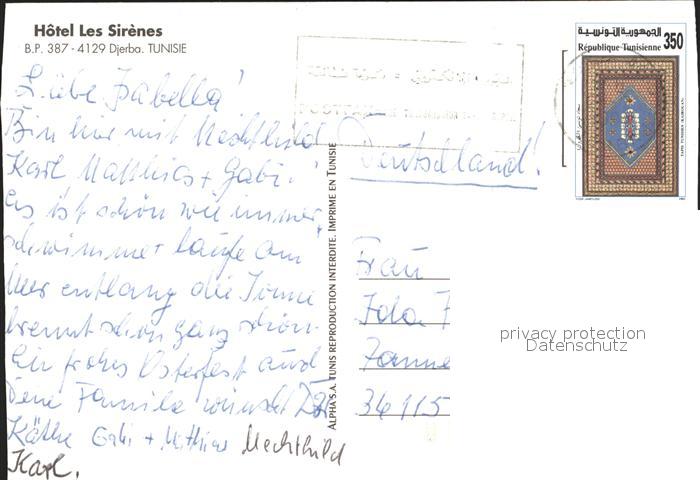 Hôtel Les Sirènes
B.P. 387 - 4129 Djerba. TUNISIE
الجمهورية التونسية
350
République Tunisienne
Liebe Isabella!
Bin hier mit Mechthild
Karl Matthias + Gabi!
Es ist schön wie immer,
schwimme + laufe am
Meer entlang die Sonne
brennt schon ganz schön.
Ein frohes Osterfest und
Deine Familie wünscht Dir
Käthe Gabi + Matthias Mechthild
Karl.
ALPHA S.A. TUNIS REPRODUCTION INTERDITE, IMPRIME EN TUNISIE
Deutschland!
Frau
34115
privacy protection
Datenschutz